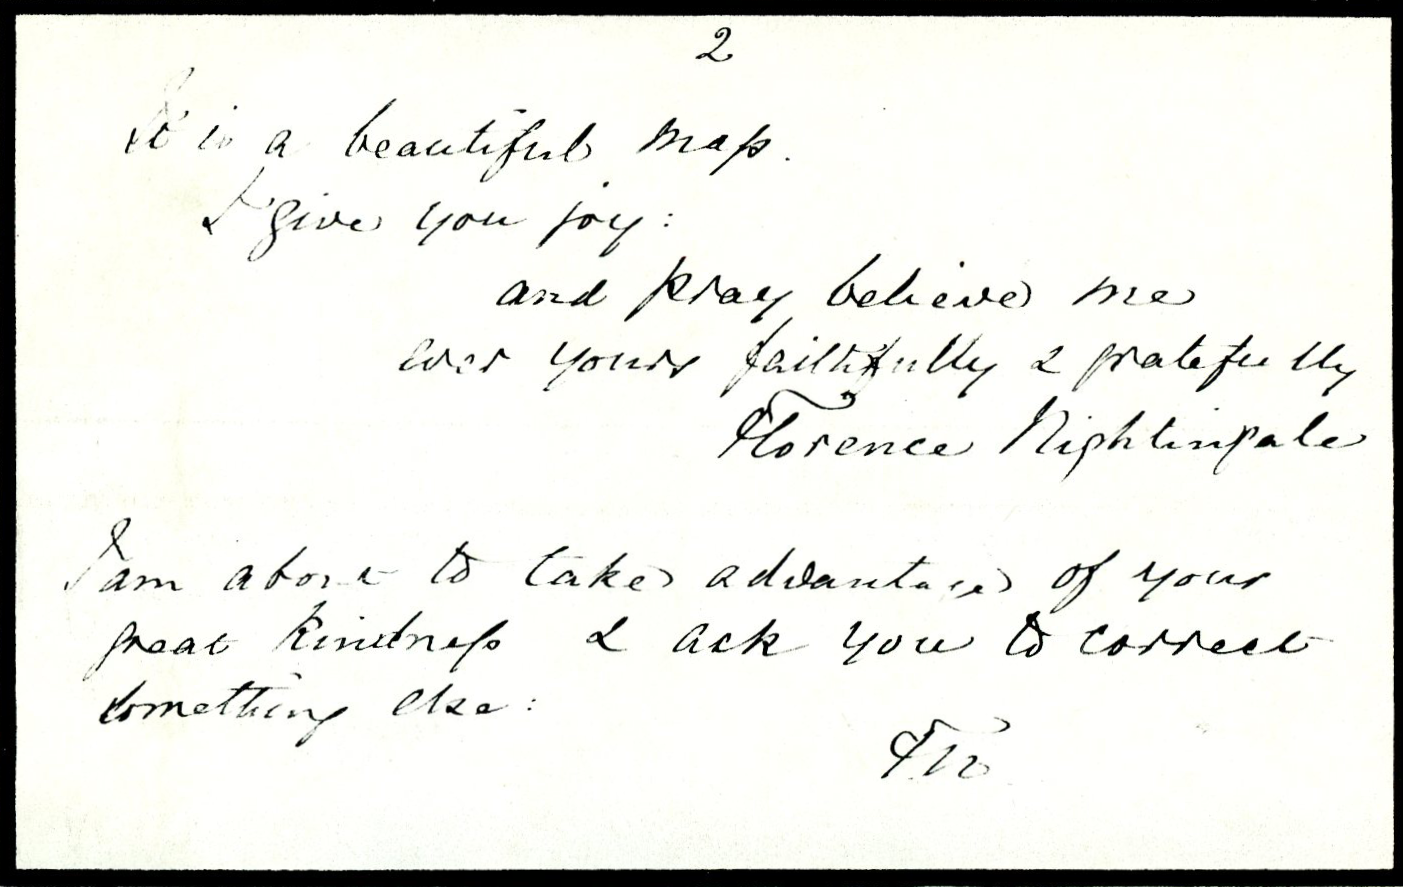 2
It is a beautiful map.
I give you joy:
and pray believe me
ever yours faithfully & gratefully
Florence Nightingale
I am about to take advantage of your
great kindness & ask you to correct
something else:
FN